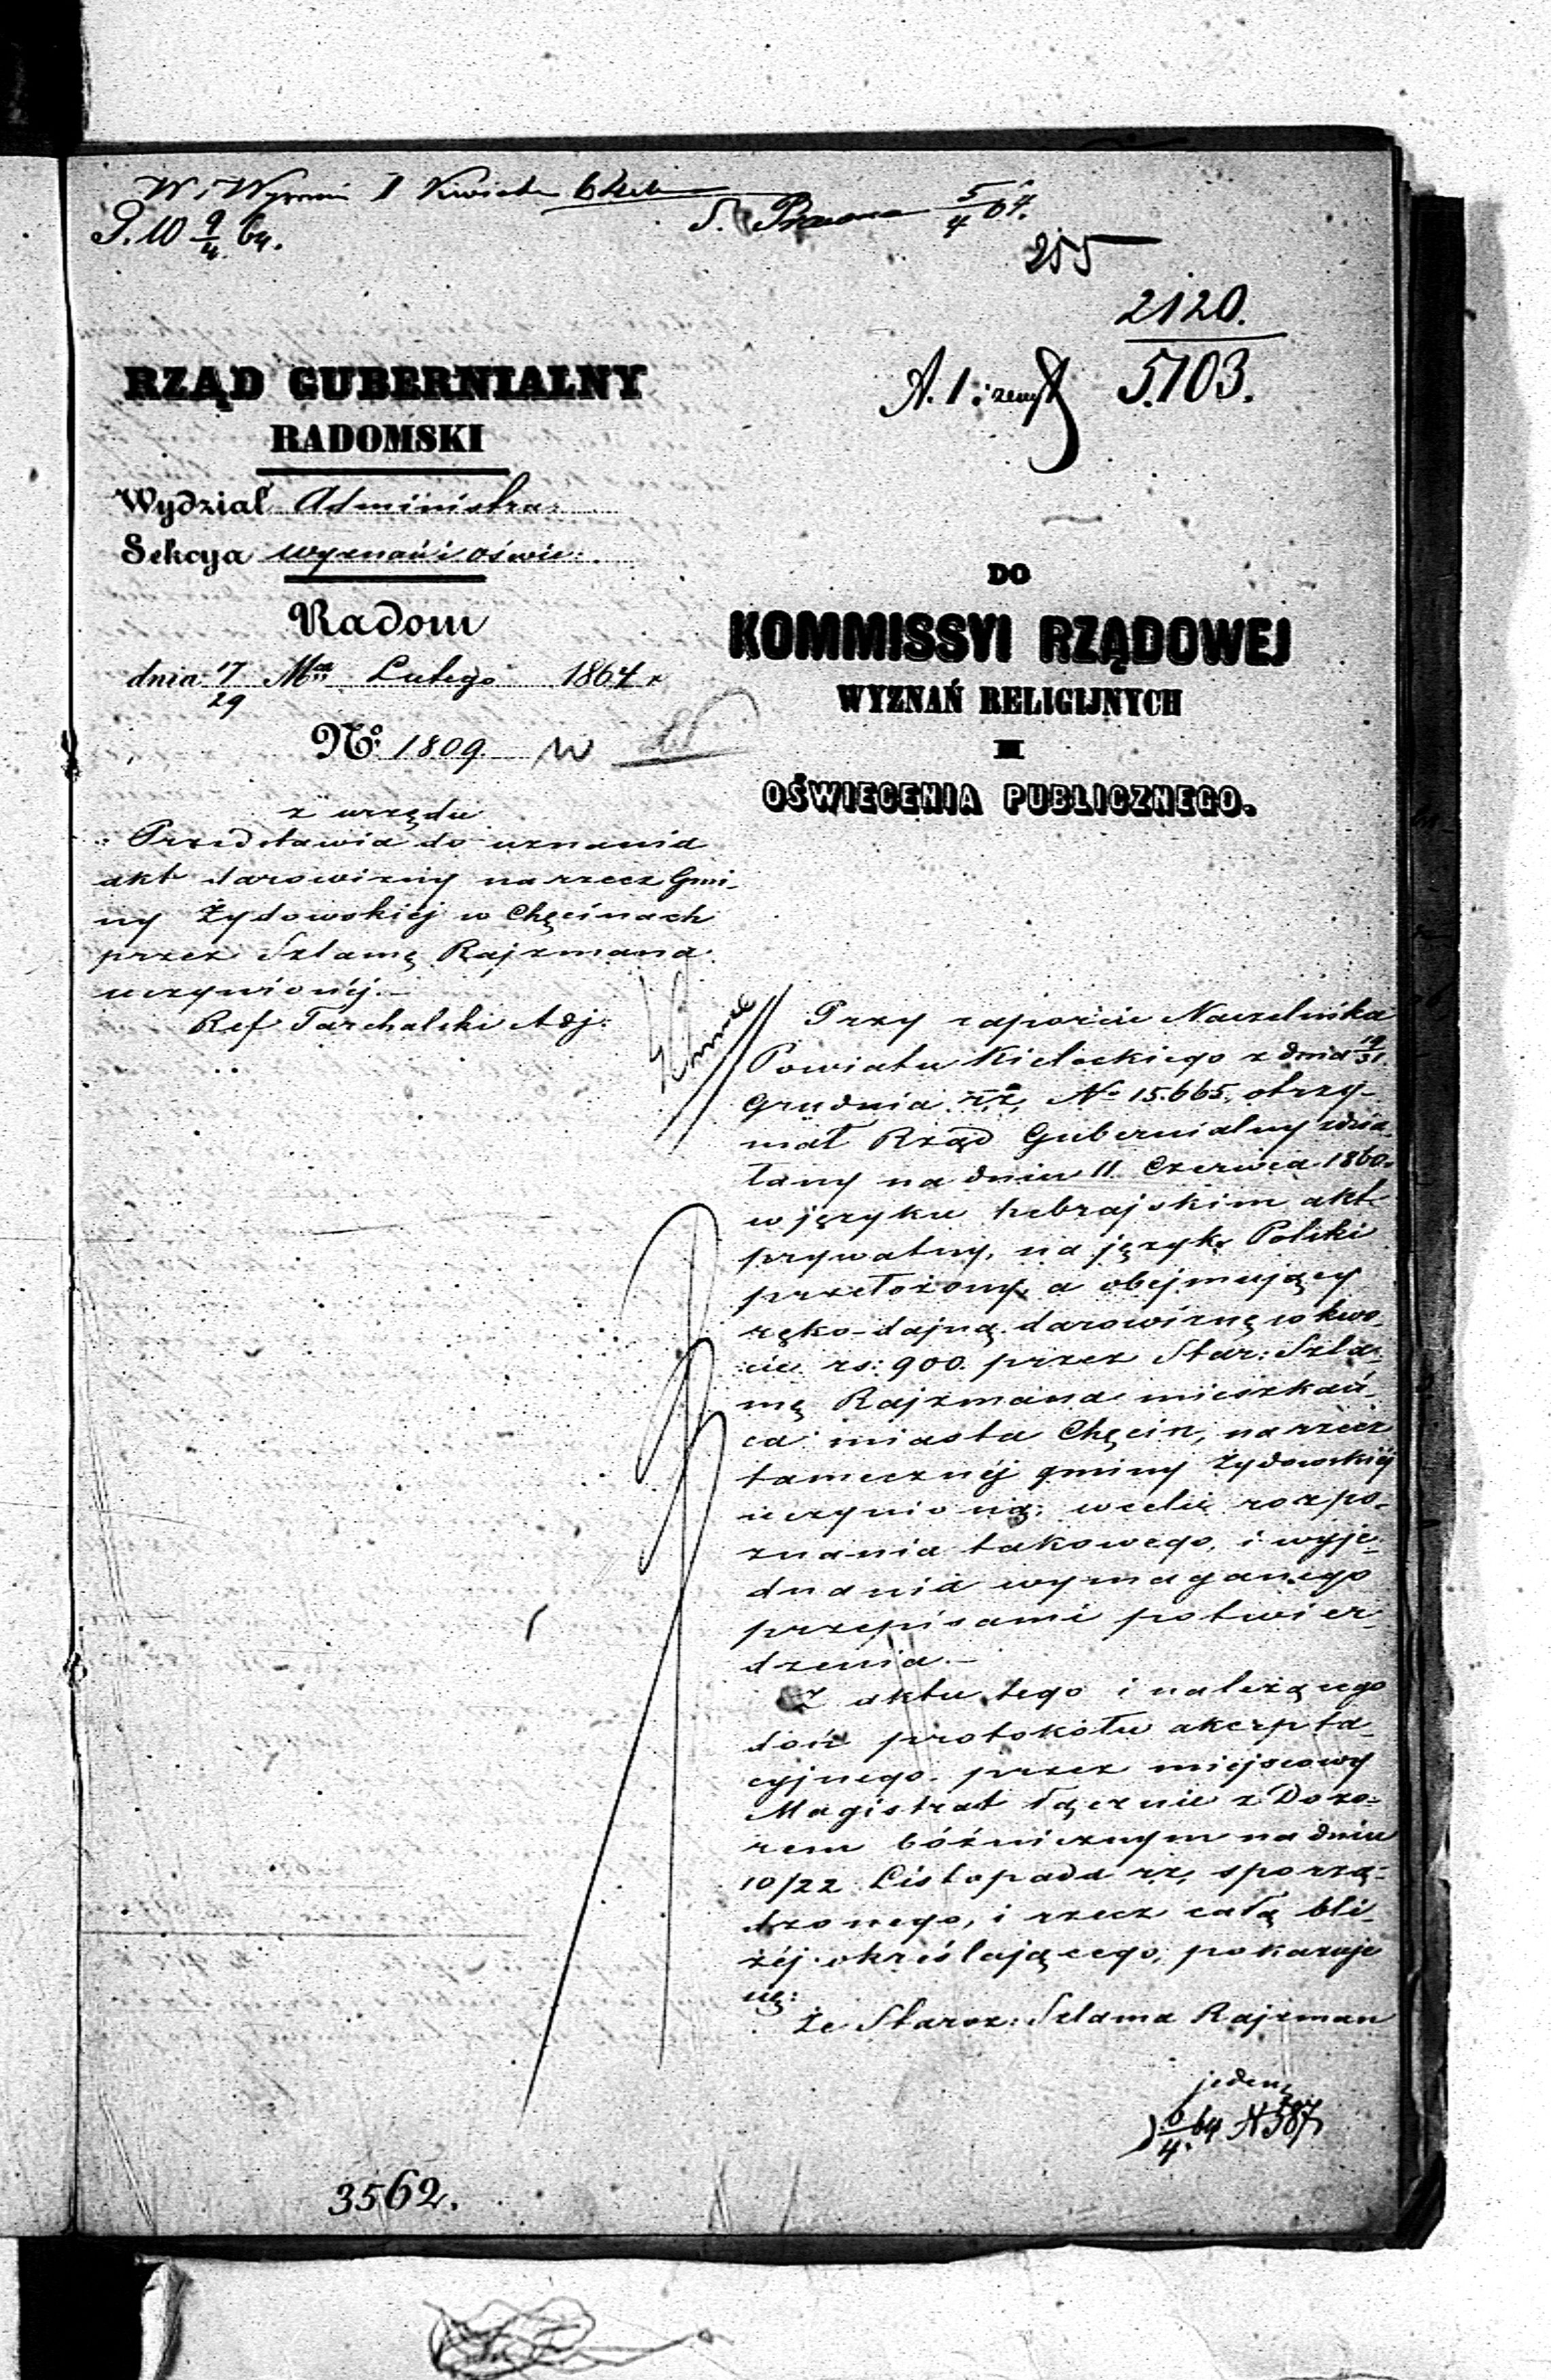 255
2120.
5703.
RZĄD GUBERNIALNY
RADOMSKI
Wydział Administra:
Sekcya wyznań i oświe:
Radom
dnia 17/29 Mca Lutego 1864 r
No. 1809.
z urzędu
Przedstawia do uznania
akt darowizny na rzecz Gmi-
ny Żydowskiéj w Chęcinach
przez Szlamę Rajzmana
uczynionéj.-
Ref Tarchalski Adj:
DO
KOMMISSYI RZĄDOWEJ
WYZNAŃ RELIGIJNYCH
I
OŚWIECENIA PUBLICZNEGO.
Przy raporcie Naczelnika
Powiatu Kieleckiego z dnia 19/31
Grudnia r.z. No 15.665, otrzy-
mał Rząd Gubernialny zdzia-
łany na dniu 11 Czerwca 1860.
w języku hebrajskim akt
prywatny, na język Polski
przełożony, a obejmujący
ręko-dajną darowiznę w kwo-
cie rs: 900. przez Star: Szla-
mę Rajzmana mieszkań-
ca miasta Chęcin, na rzecz
tameczney gminy żydowskiéj
uczynioną; w celu rozpo-
znania takowego, i wyje-
dnania wymaganego
przepisami potwier-
dzenia.-
Z aktu tego i należącego
doń protokołu akcepta-
cyjnego przez miejscowy
Magistrat łącznie z Dozo-
rem bóżniczym na dniu
10/22 Listopada r.z. sporzą-
dzonego, i rzecz całą bli-
żéj określającego, pokazuje
się:
Że Staroz: Szlama Rajzman
jeden
3562.